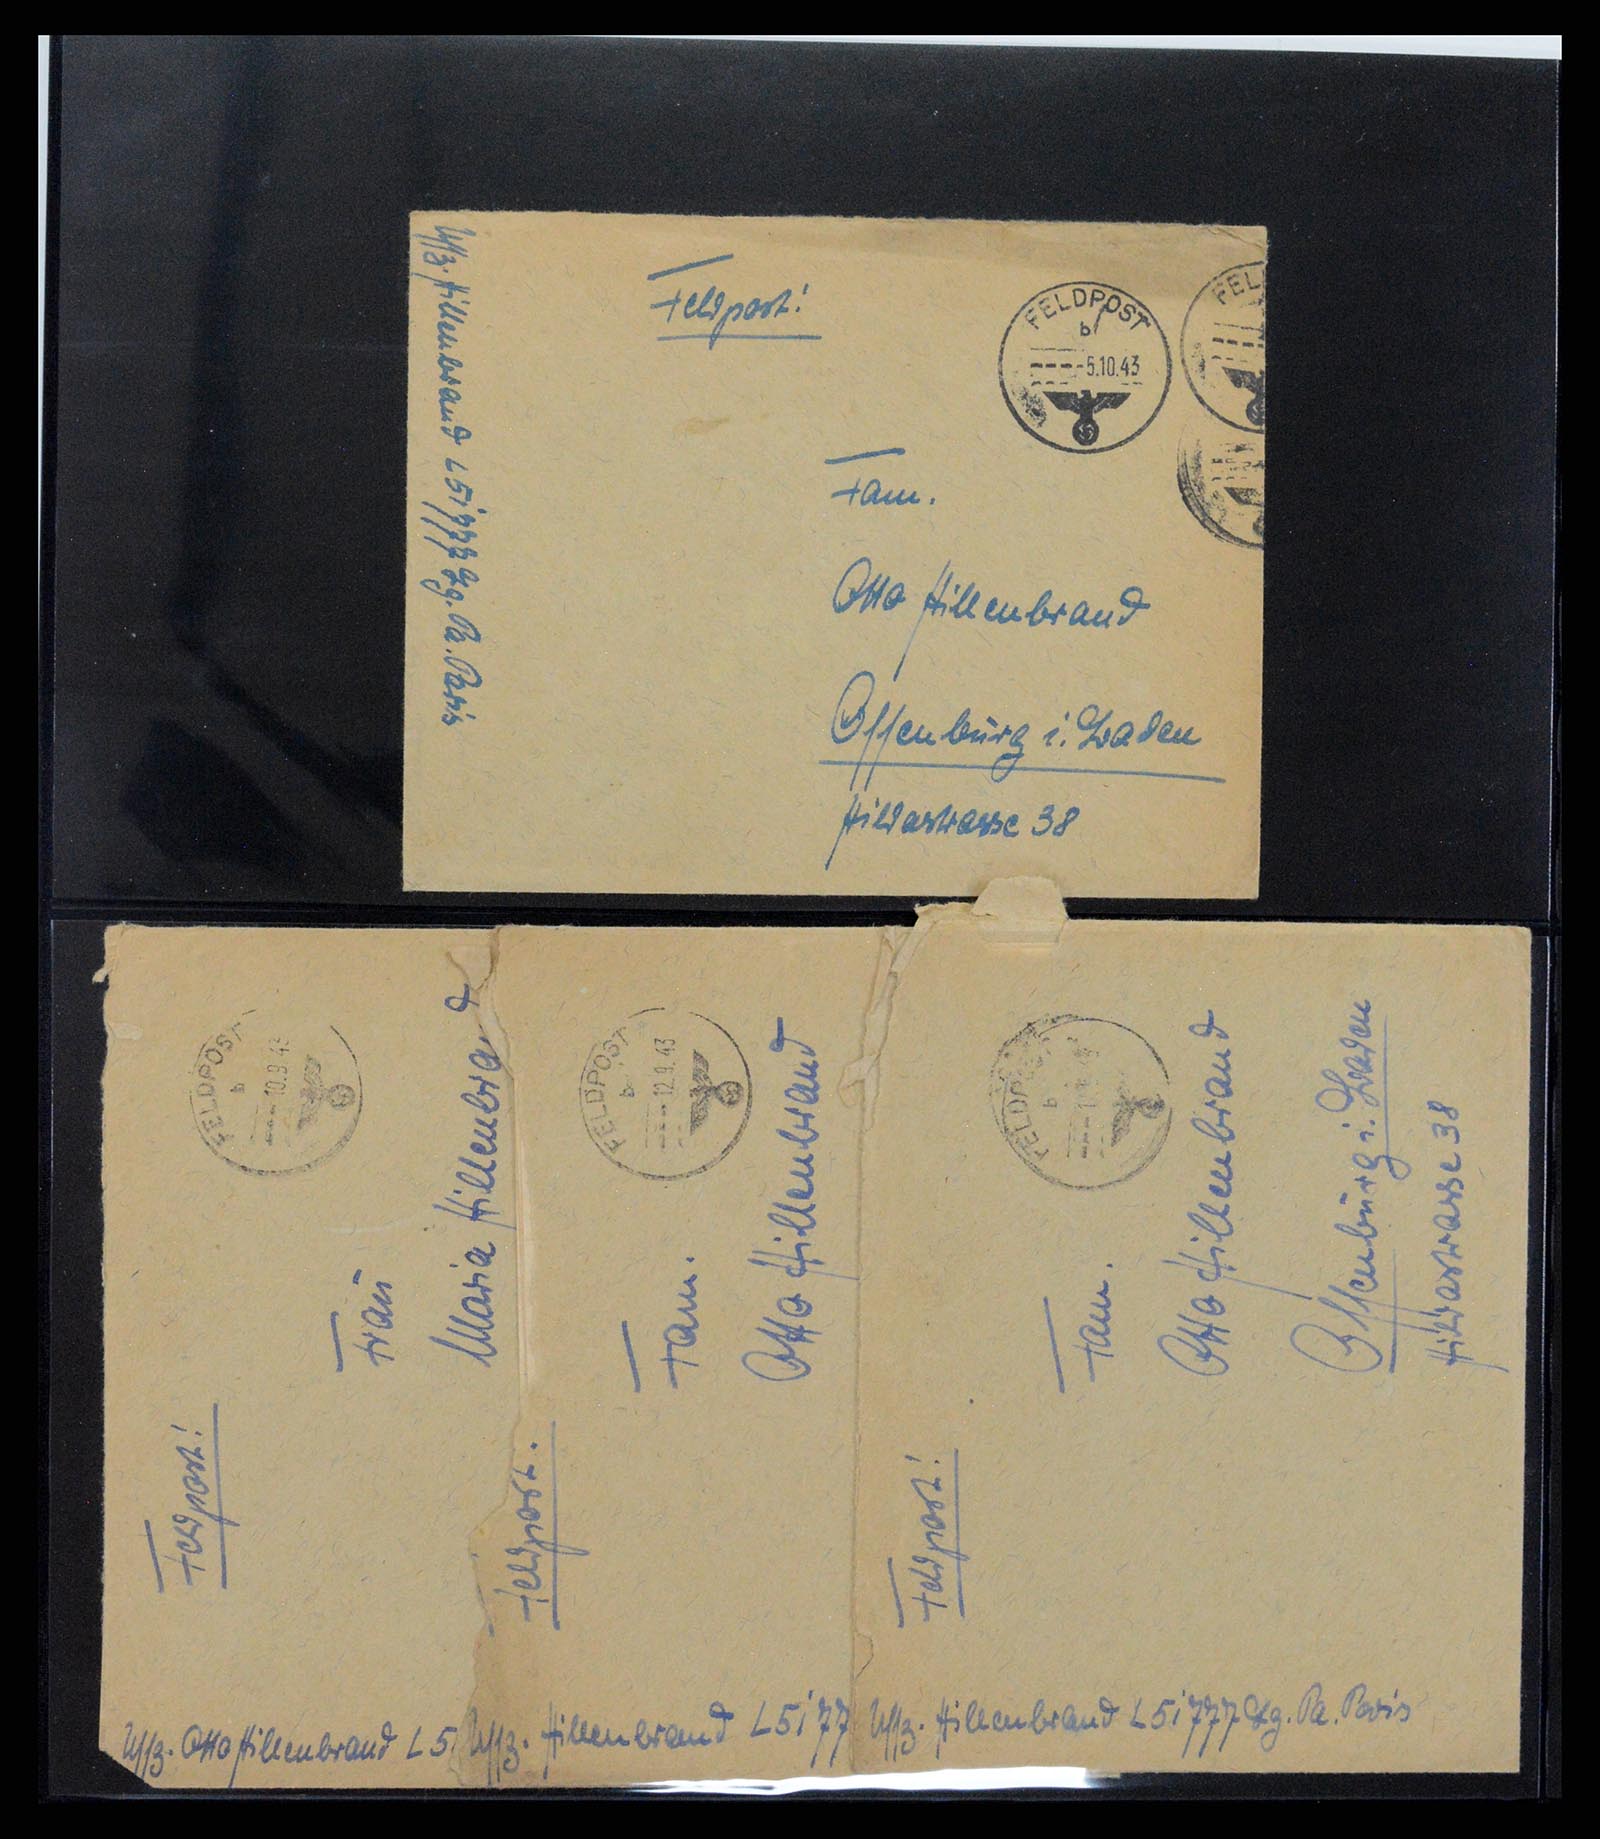 Uffz. Hillenbrand L 51777 Lg. Pa. Paris
Feldpost!
FELDPOST
b
5.10.43
FEL
Fam.
Otto Hillenbrand
Offenburg i. Baden
Hildastrasse 38
FELDPOST
b
10.9.43
Feldpost!
Frau
Maria Hillenbrand
Uffz. Otto Hillenbrand L 5
FELDPOST
b
12.9.43
Feldpost.
Fam.
Otto Hillenbrand
Uffz. Hillenbrand L 5177
FELDPOST
b
Feldpost!
Fam.
Otto Hillenbrand
Offenburg i. Baden
Hildastrasse 38
Uffz. Hillenbrand L 51777 Lg. Pa. Paris